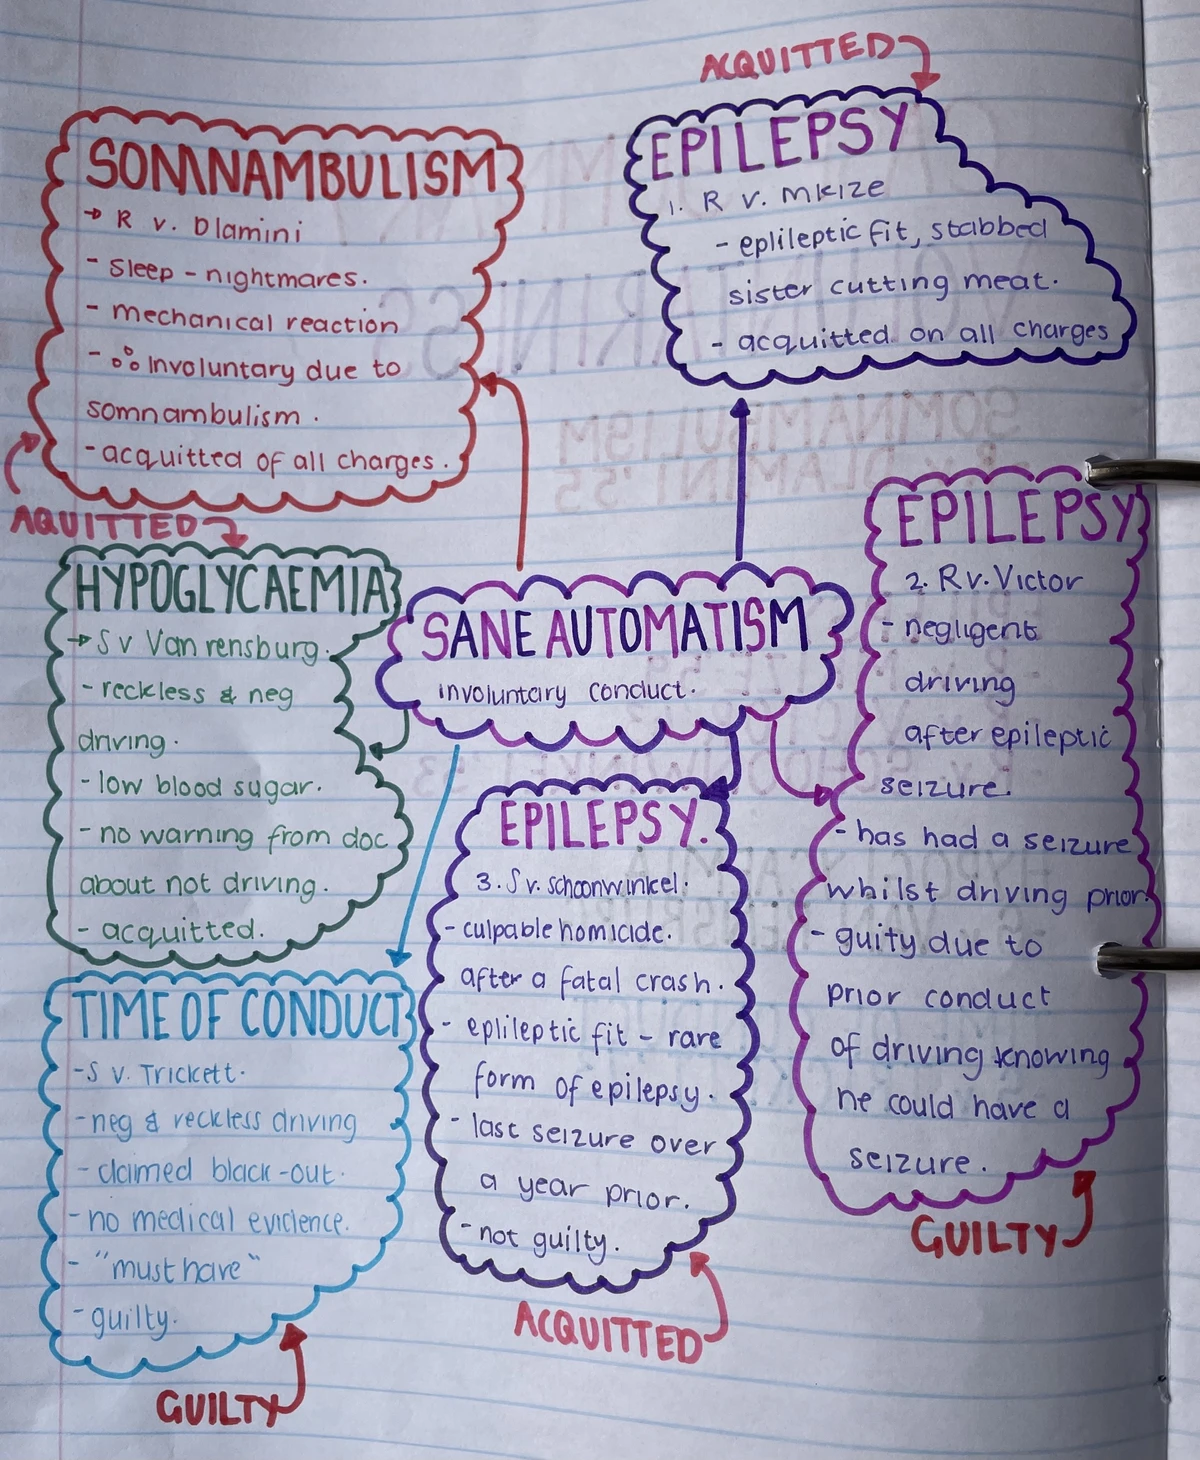 ACQUITTED
SOMNAMBULISM
→ R v. Dlamini
- sleep - nightmares.
- mechanical reaction
- ∴ Involuntary due to
somnambulism.
- acquitted of all charges.
AQUITTED
EPILEPSY
1. R v. Mkize
- eplileptic fit, stabbed
sister cutting meat.
- acquitted on all charges
HYPOGLYCAEMIA
→ S v Van rensburg.
- reckless & neg
driving.
- low blood sugar.
- no warning from doc
about not driving.
- acquitted.
SANE AUTOMATISM
involuntary conduct.
EPILEPSY
2. R v. Victor
- negligent
driving
after epileptic
seizure.
- has had a seizure
whilst driving prior.
- guity due to
prior conduct
of driving knowing
he could have a
seizure.
GUILTY
EPILEPSY.
3. S v. schoonwinkel.
- culpable homicide.
after a fatal crash.
- eplileptic fit - rare
form of epilepsy.
- last seizure over
a year prior.
- not guilty.
ACQUITTED
TIME OF CONDUCT
- S v. Trickett.
- neg & reckless driving
- claimed black-out.
- no medical evidence.
- "must have"
- guilty.
GUILTY